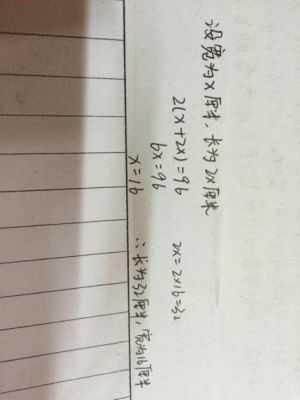 设宽为x厘米,长为2x厘米
2(x+2x)=96
6x=96
x=16
2x=2×16=32
∴长为32厘米,宽为16厘米